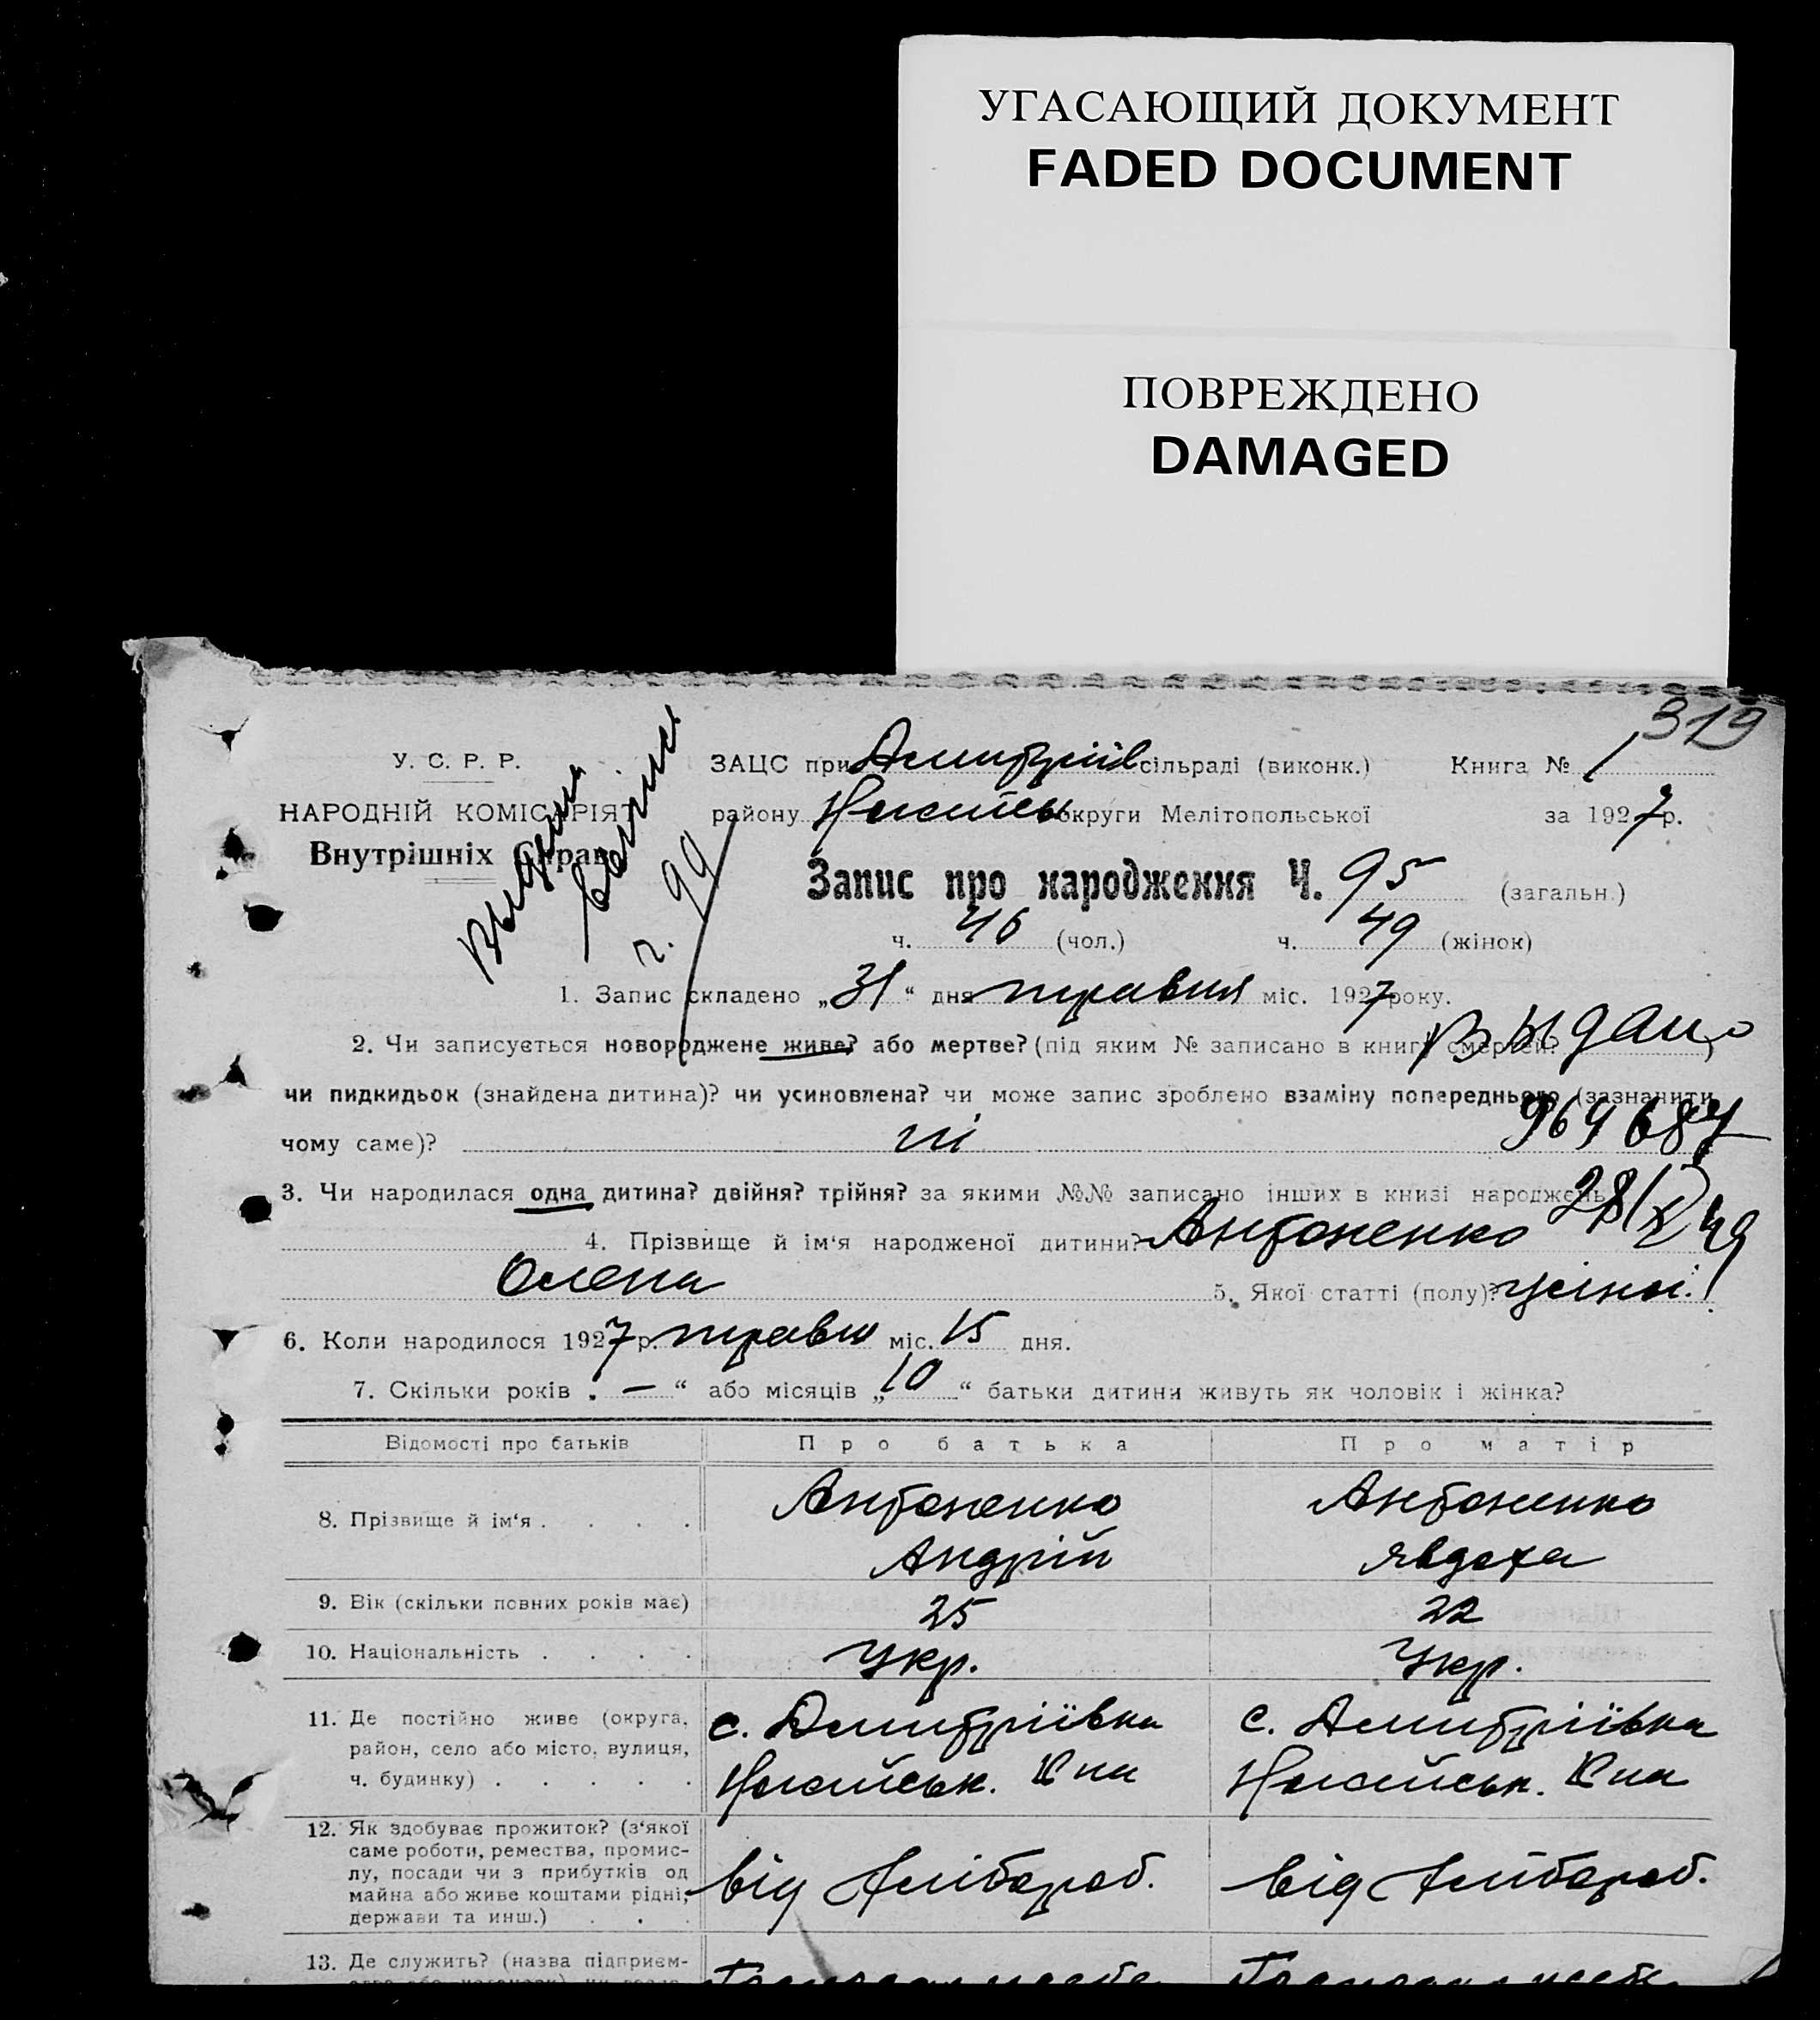 УГАСАЮЩИЙ ДОКУМЕНТ
FADED DOCUMENT
ПОВРЕЖДЕНО
DAMAGED
319
У. С. Р. Р.
НАРОДНІЙ КОМІСАРІЯТ
Внутрішніх Справ
ЗАЦС при Дмитріїв сільраді (виконк.) Книга № 1
району округи Мелітопольської за 1927 р.
Запис про народження Ч. 95 (загальн.)
ч. 46 (чол.) ч. 49 (жінок)
1. Запис складено „31“ дня травня міс. 1927 року.
2. Чи записується новороджене живе? або мертве? (під яким № записано в книгі смертей?
Выдано
чи пидкидьок (знайдена дитина)? чи усиновлена? чи може запис зроблено взаміну попереднього (зазначити
чому саме)? ні
964687
3. Чи народилася одна дитина? двійня? трійня? за якими №№ записано інших в книзі народжень
28/X 49
4. Прізвище й ім‘я народженої дитини? Антоненко
Олена 5. Якої статті (полу)? жіної
6. Коли народилося 1927 р. травня міс. 15 дня.
7. Скільки років „—“ або місяців „10“ батьки дитини живуть як чоловік і жінка?
Відомості про батьків Про батька Про матір
8. Прізвище й ім‘я . . . . Антоненко Антоненко
Андрій Явдоха
9. Вік (скільки повних років має) 25 22
10. Національність . . . . Укр. Укр.
11. Де постійно живе (округа, с. Дмитріївка с. Дмитріївка
район, село або місто, вулиця,
ч. будинку) . . . . .
12. Як здобуває прожиток? (з‘якої
саме роботи, ремества, промис-
лу, посади чи з прибутків од
майна або живе коштами рідні, від хлібороб. від хлібороб.
держави та инш.) . . .
13. Де служить? (назва підприєм-